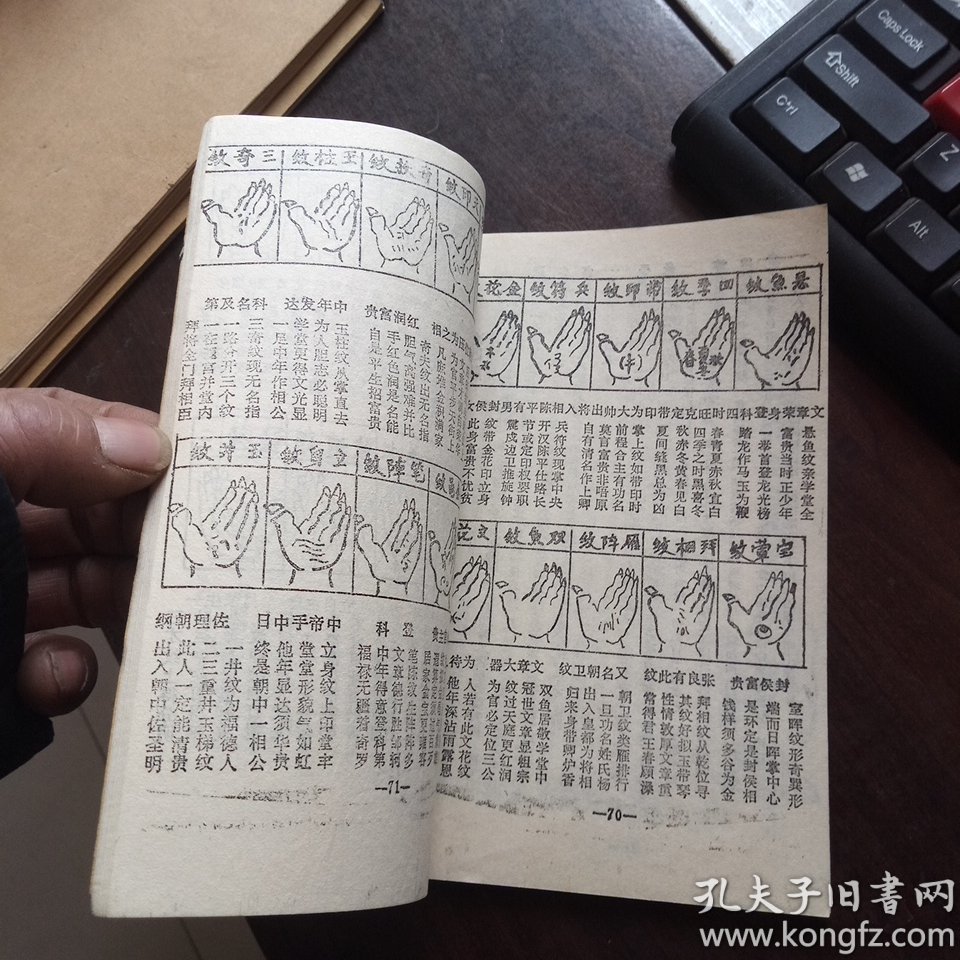 悬魚紋
四季紋
帶印紋
兵符紋
金花
文章荣身登科
四时旺克定
带印为大帅
出将入相陈平
有男封侯女
悬鱼纹亲学堂全
富贵当时正少年
一举首登龙光榜
踏龙作马玉为鞭
春青夏赤秋宜白
四季之时黑喜冬
秋赤冬黄春见白
夏间缝黑总为凶
掌上纹如带印时
前程合主有功名
莫言富贵非唔原
自有清名作上卿
兵符纹现掌中央
开汉陈平仕路长
节或定印权要职
震戍边卫推旌钟
纹带金花印立身
此身富贵不忧贫
宝暈紋
拜相紋
雁阵紋
双魚紋
文花
封侯富贵
张良有此纹
又名朝卫纹
文章大器
为待
室晖纹形奇異形
端而日晖掌中心
是环定是封侯相
钱样须多谷为金
拜相纹从乾位寻
其纹好拟玉带琴
性情敦厚文章重
常得君王春顾深
朝卫纹类雁排行
一旦功名姓氏杨
出入皇都为将相
归来身带卿炉香
双鱼居敬学堂中
冠世文章显祖宗
纹过天庭更红润
为官必定位三公
人若有此文花纹
他年深沾雨露恩
—70—
印紋
奇扶紋
玉柱紋
三奇紋
之相
红润富贵
中年发达
科名及第
奇夫纹出无名指
胆气高强难并比
手红色润是名能
自是平生招富贵
玉柱纹从掌直去
为人胆志必聪明
学堂更得文光显
一是中年作相公
三奇纹现无名指
一路分开三个纹
一在震宫并堂内
拜将金门拜相臣
笔陣紋
立身紋
玉井紋
登科
中帝手中日
佐理朝纲
中年得意登科第
福禄元禧寿奇罗
立身纹上印堂牢
堂堂形貌气如虹
他年显达须华贵
终是朝中一相公
一井纹为福德人
二三重井玉梯纹
此人一定能清贵
出入朝中佐圣明
—71—
Caps Lock
Shift
Alt
Z
孔夫子旧書网
www.kongfz.com